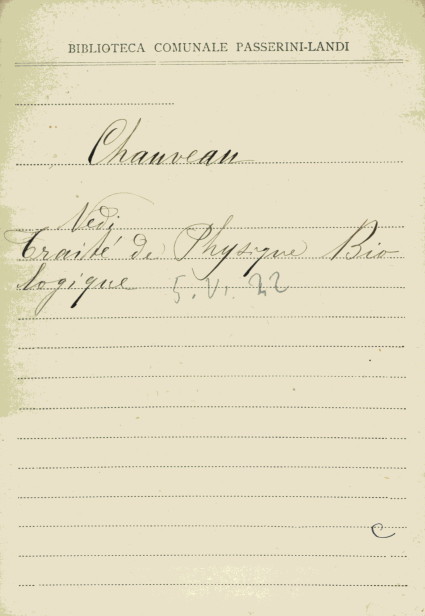 BIBLIOTECA COMUNALE PASSERINI-LANDI
Chauveau
Vedi
Traité de Physique Bio
logique 5. V. 22
C